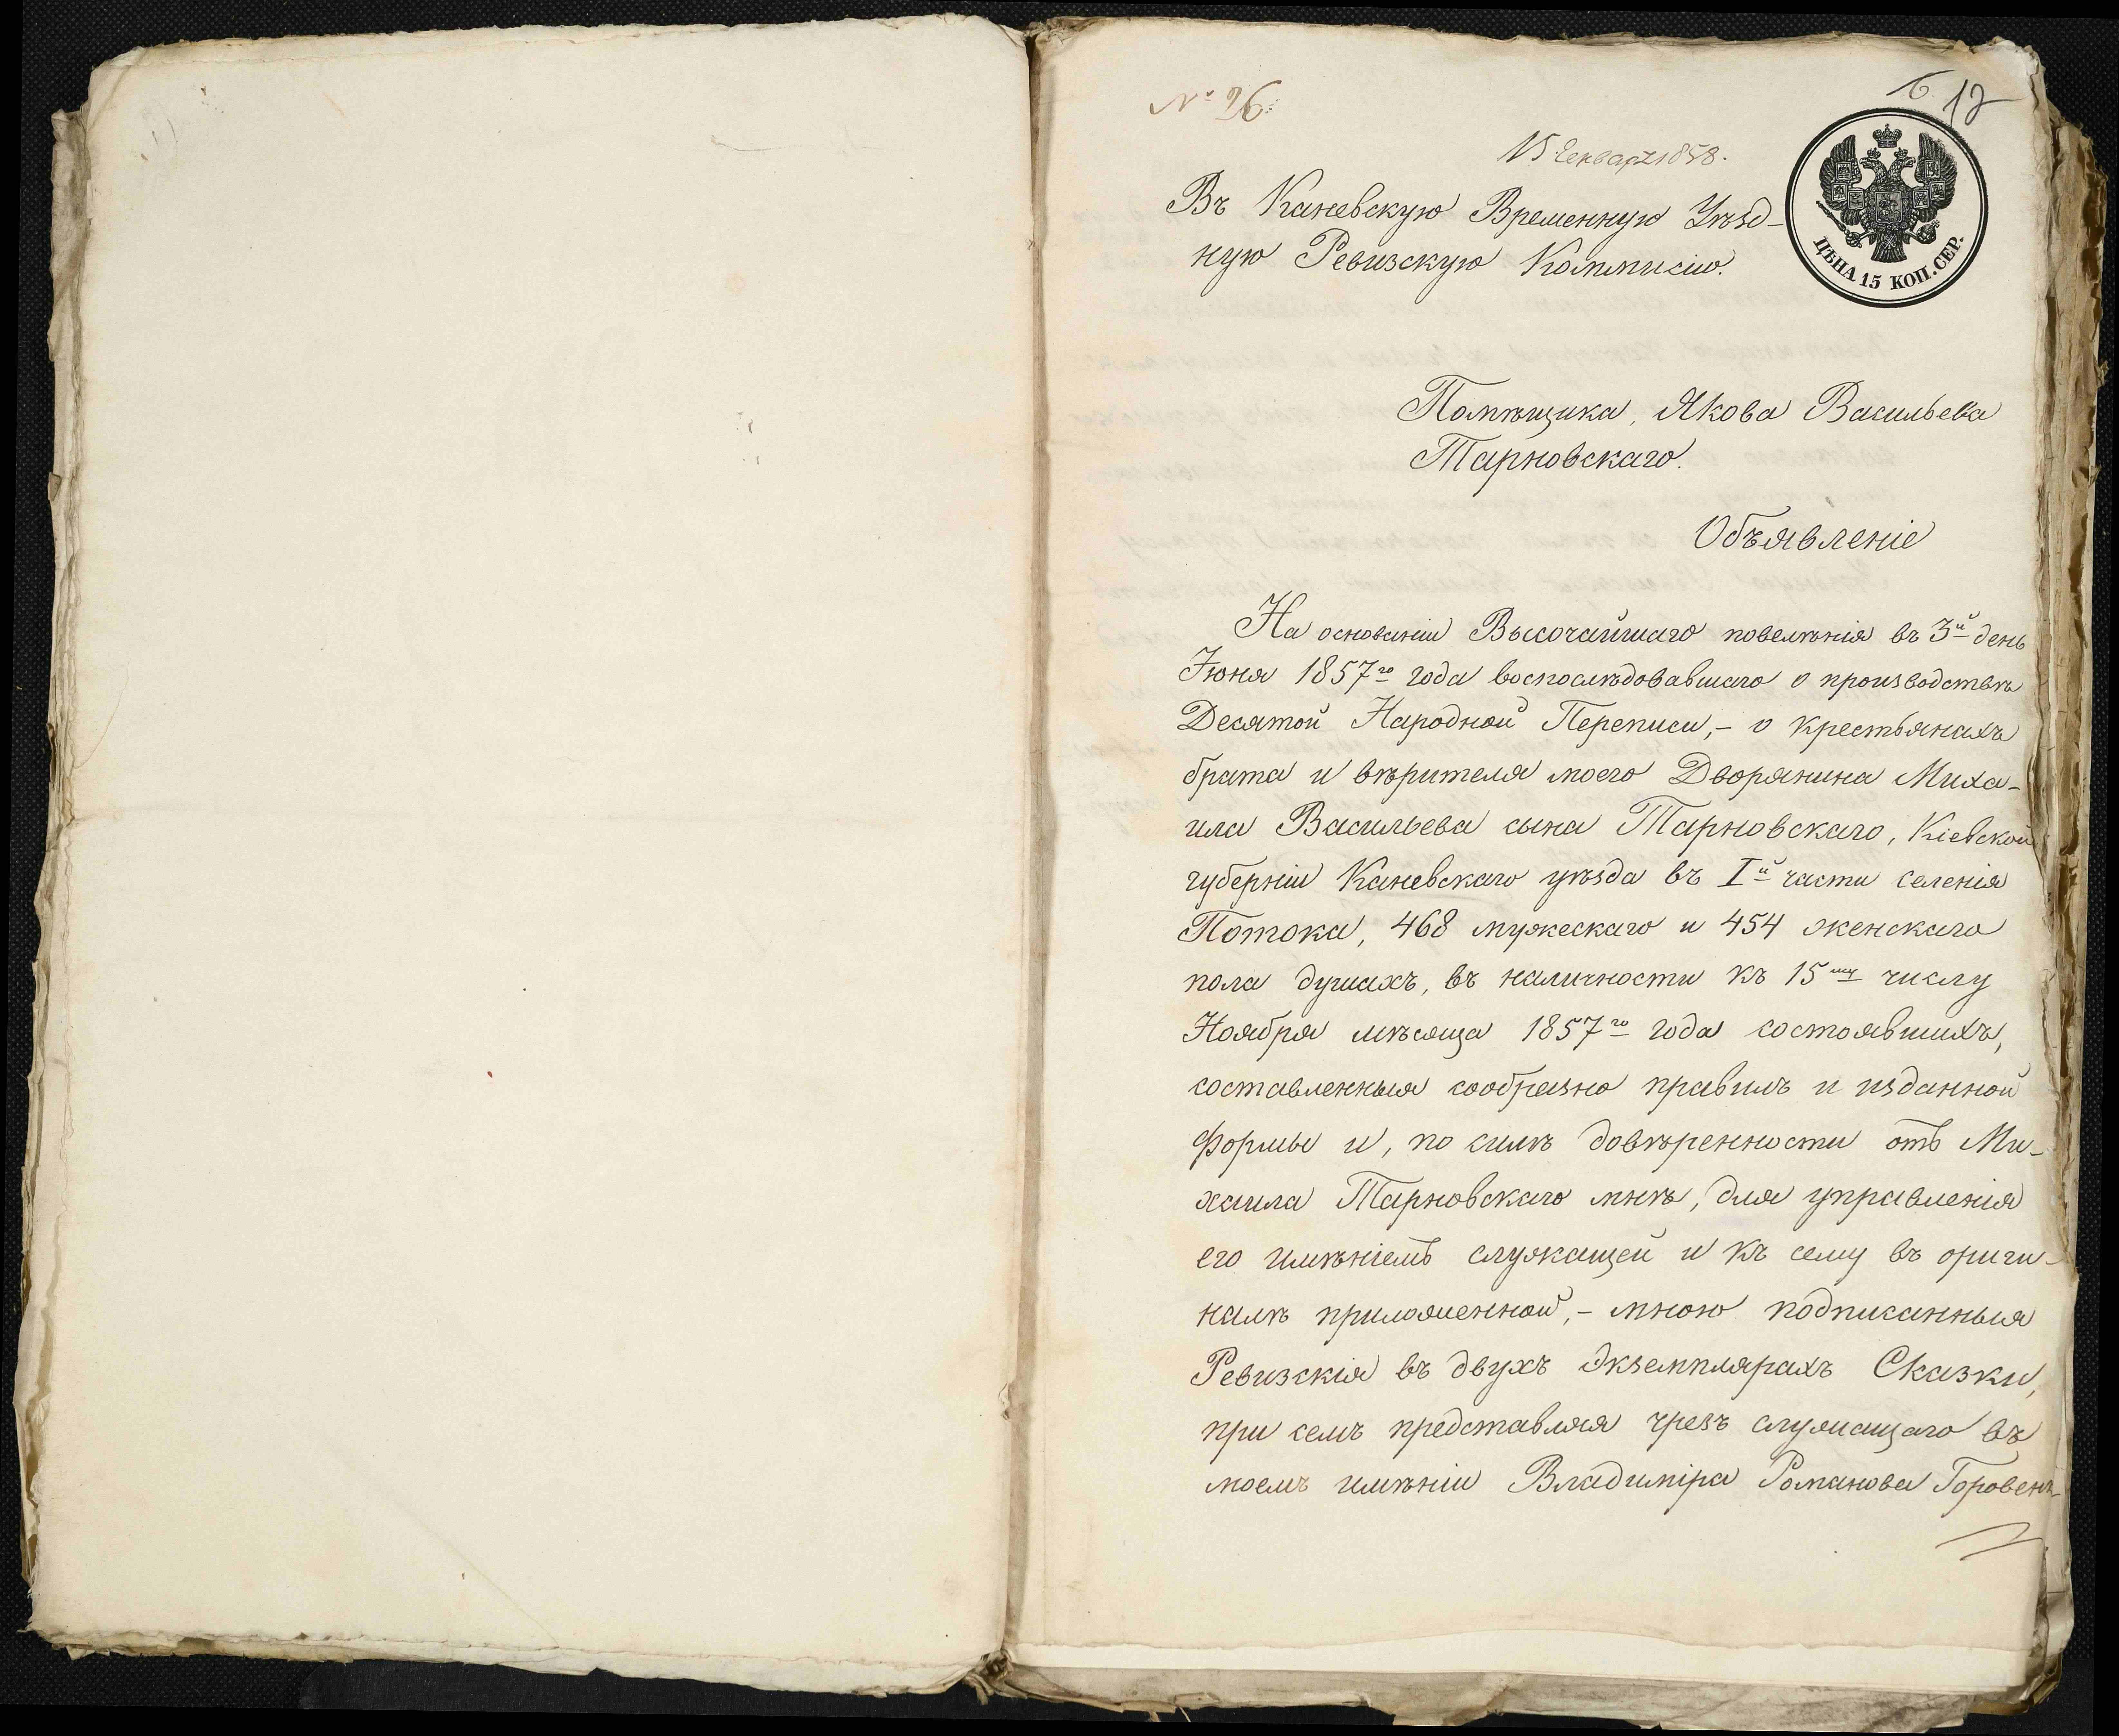 № 26.
6. 12
15 Генваря 1858.
Въ Каневскую Временную Уѣзд-
ную Ревизскую Коммисію.
ЦѢНА 15 КОП. СЕР.
Помѣщика, Якова Васильева
Тарновскаго.
Объявленіе
На основаніи Высочайшаго повелѣнія въ 3й день
Іюня 1857го года воспослѣдовавшаго о производствѣ
Десятой Народной Переписи,- о крестьянахъ
брата и вѣрителя моего Дворянина Миха-
ила Васильева сына Тарновскаго, Кіевской
губерніи Каневскаго уѣзда въ Iй части селенія
Потока, 468 мужескаго и 454 женскаго
пола душахъ, въ наличности къ 15му числу
Ноября мѣсяца 1857го года состоявшихъ,
составленныя сообразно правилъ и изданной
формы и, по силѣ довѣренности отъ Ми-
хаила Тарновскаго мнѣ, для управленія
его имѣніемъ служащей и къ сему въ ориги-
налѣ приложенной,- мною подписанныя
Ревизскія въ двухъ экземплярахъ Сказки,
при семъ представляя чрезъ служащаго въ
моемъ имѣніи Владиміра Романова Горовен-